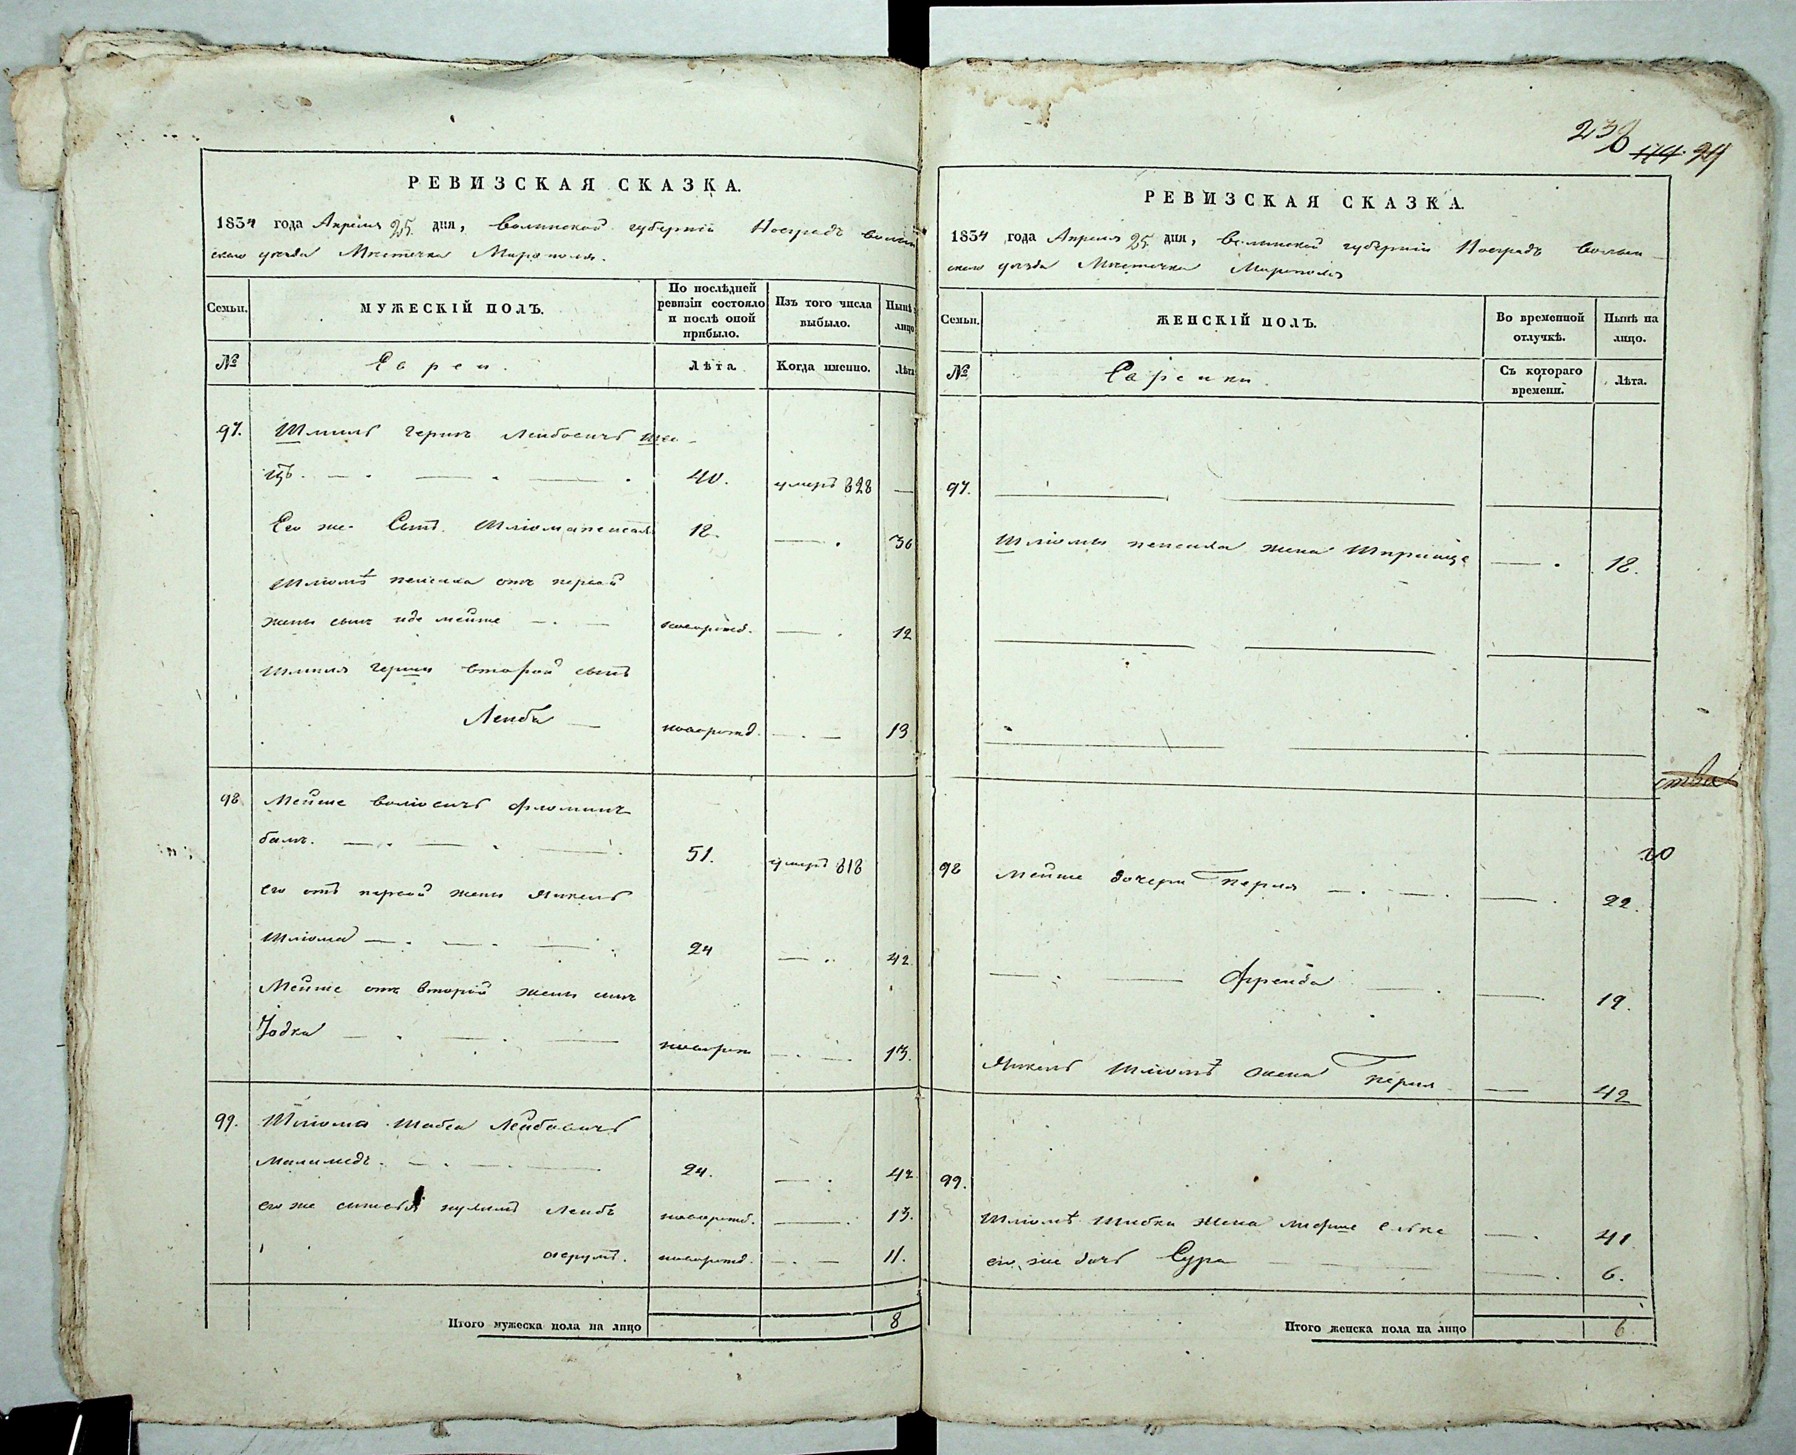 РЕВИЗСКАЯ СКАЗКА.
1834 года Апреля 25 дня, Волынской губерніи Новградъ Волын
скаго уезда Местечка Мирополя.
Семьи.
МУЖЕСКІЙ ПОЛЪ.
По послѣдней ревизіи состояло и послѣ оной прибыло.
Изъ того числа выбыло.
Нынѣ лицо
№
Евреи.
Лѣта.
Когда именно.
Лѣта
97. Шмиль Герик Лейбовичъ Шве
цъ. 40. умеръ 828
Его же Сынъ Шліома пейсах 18 36
Шліомы пейсаха отъ первой
жены сынъ иде мейше новорожд. 12
Шмиля Герша второй сынъ
Лейба новорожд. 13
98 Мейше Волковичъ
бамъ. 51. умеръ 818
его отъ первой жены Янкель
Шліома 24 42
Мейше отъ второй жены сынъ
Іодка новорож 13.
99. Шліома Шабса Лейбовичъ
Маламедъ. 24. 42
его же сыновья нухимъ Лейбъ новорожд. 13.
новорожд. 11.
Итого мужеска пола на лицо 8
236 174 29
РЕВИЗСКАЯ СКАЗКА.
1834 года Апреля 25 дня, Волынской губерніи Новградъ Волын
скаго уезда Местечка Мирополя
Семьи.
ЖЕНСКІЙ ПОЛЪ.
Во временной отлучкѣ.
Нынѣ на лицо.
№
Еврейки.
Съ котораго времени.
Лѣта.
97.
Шліомы пейсаха жена Шпринце 18.
20
98 Мейше дочери Перля 22.
Фрейда 19.
Янкель Шліомы жена Перля 42
99.
Шліомы Шабсы жена Елке 41
его же дочь Сура 6.
Итого женска пола на лицо 6